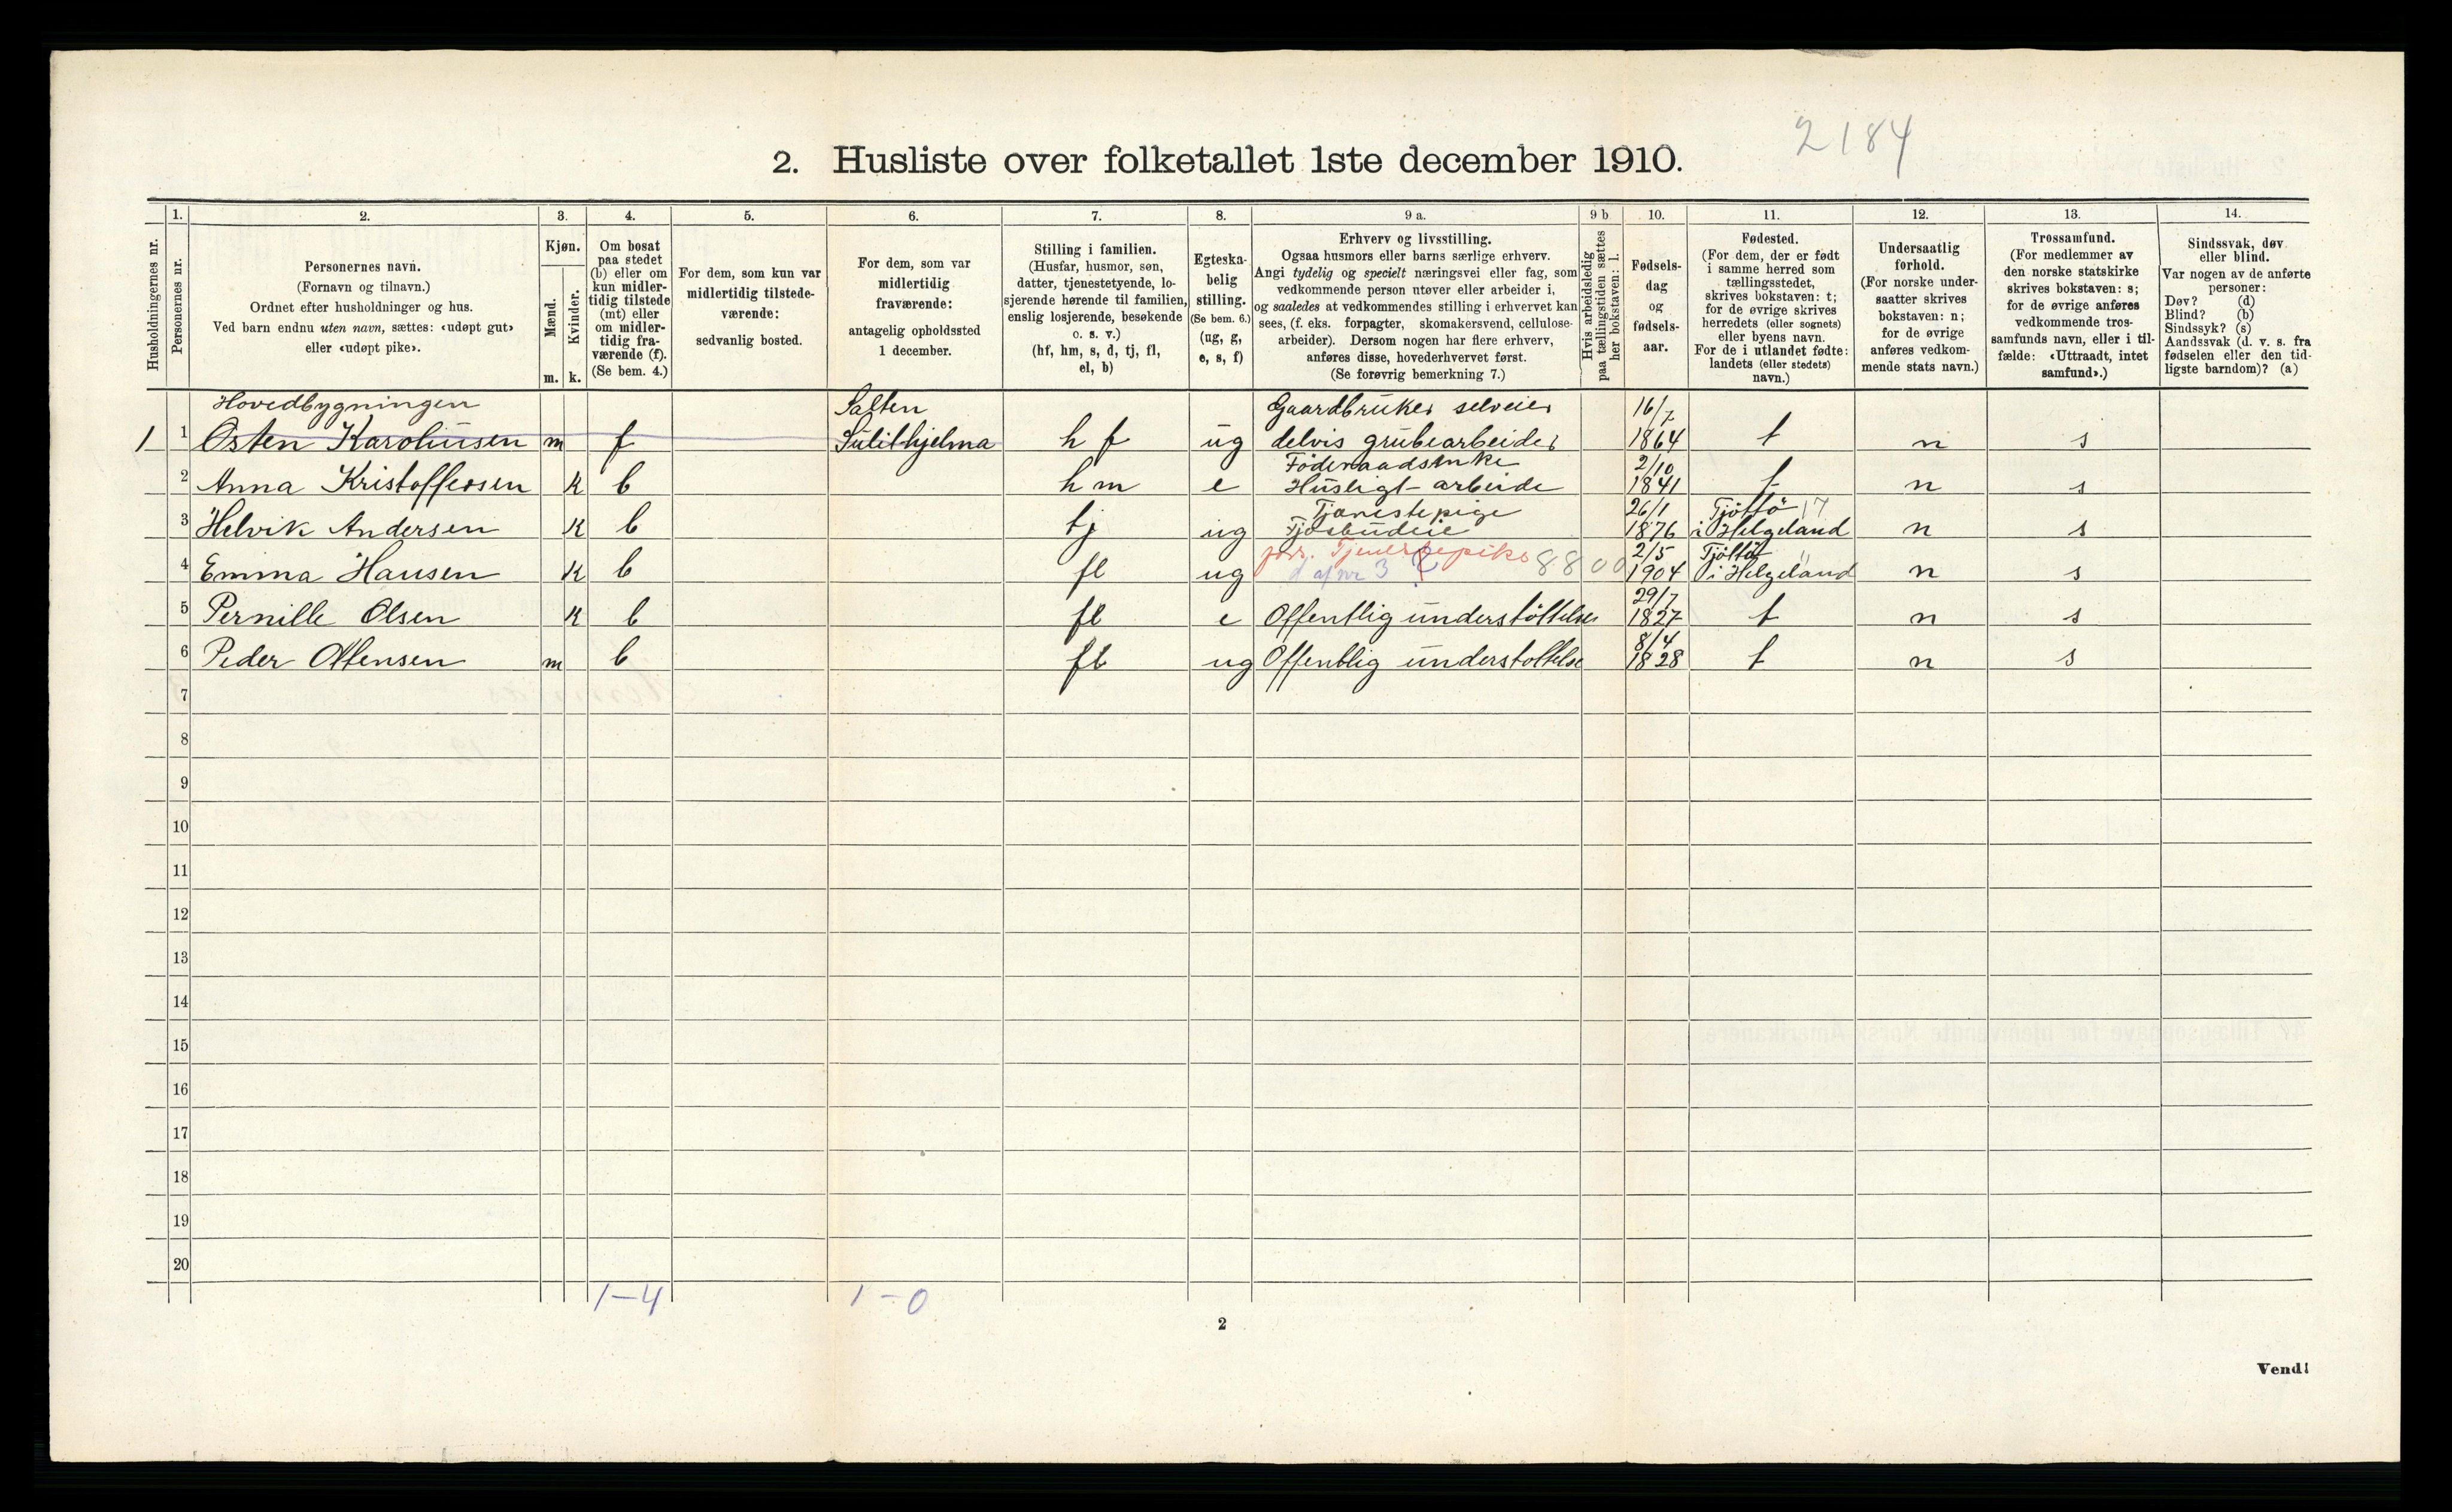 2184
2. Husliste over folketallet 1ste december 1910.
1. 2. 3. 4. 5. 6. 7. 8. 9 a. 9 b 10. 11. 12. 13. 14.
Husholdningernes nr.
Personernes nr.
Personernes navn.
(Fornavn og tilnavn.)
Ordnet efter husholdninger og hus.
Ved barn endnu uten navn, sættes: «udøpt gut»
eller «udøpt pike».
Kjøn.
Mænd.
Kvinder.
m. k.
Om bosat
paa stedet
(b) eller om
kun midler-
tidig tilstede
(mt) eller
om midler-
tidig fra-
værende (f).
(Se bem. 4.)
For dem, som kun var
midlertidig tilstede-
værende:
sedvanlig bosted.
For dem, som var
midlertidig
fraværende:
antagelig opholdssted
1 december.
Stilling i familien.
(Husfar, husmor, søn,
datter, tjenestetyende, lo-
sjerende hørende til familien,
enslig losjerende, besøkende
o. s. v.)
(hf, hm, s, d, tj, fl,
el, b)
Egteska-
belig
stilling.
(Se bem. 6.)
(ug, g,
e, s, f)
Erhverv og livsstilling.
Ogsaa husmors eller barns særlige erhverv.
Angi tydelig og specielt næringsvei eller fag, som
vedkommende person utøver eller arbeider i,
og saaledes at vedkommendes stilling i erhvervet kan
sees, (f. eks. forpagter, skomakersvend, cellulose-
arbeider). Dersom nogen har flere erhverv,
anføres disse, hovederhvervet først.
(Se forøvrig bemerkning 7.)
Hvis arbeidsledig
paa tællingstiden sættes
her bokstaven: l.
Fødsels-
dag
og
fødsels-
aar.
Fødested.
(For dem, der er født
i samme herred som
tællingsstedet,
skrives bokstaven: t;
for de øvrige skrives
herredets (eller sognets)
eller byens navn.
For de i utlandet fødte:
landets (eller stedets)
navn.)
Undersaatlig
forhold.
(For norske under-
saatter skrives
bokstaven: n;
for de øvrige
anføres vedkom-
mende stats navn.)
Trossamfund.
(For medlemmer av
den norske statskirke
skrives bokstaven: s;
for de øvrige anføres
vedkommende tros-
samfunds navn, eller i til-
fælde: «Uttraadt, intet
samfund».)
Sindssvak, døv
eller blind.
Var nogen av de anførte
personer:
Døv? (d)
Blind? (b)
Sindssyk? (s)
Aandssvak (d. v. s. fra
fødselen eller den tid-
ligste barndom)? (a)
Hovedbygningen Salten Gaardbruker selveier 16/7
1 1 Osten Karolinsen m f Sulithjelma h f ug delvis grubearbeider 1864 t n s
Føderaadsenke 2/10
2 Anna Kristoffersen K b h m e Husligt arbeide 1841 t n s
Tjænestepige 26/1 Tjöttö 17
3 Helvik Andersen K b tj ug Fjøsbudeie 1876 i Helgeland n s
Tjenestepike 8800 2/5 Tjöttö "
4 Emma Hansen K b fl ug d af nr 3 ? 1904 i Helgeland n s
29/7
5 Pernille Olsen K b fl e Offentlig understöttelse 1827 t n s
8/4
6 Peder Ottensen m b fl ug Offentlig understöttelse 1828 t n s
7
8
9
10
11
12
13
14
15
16
17
18
19
20
1-4 1-0
2
Vend!